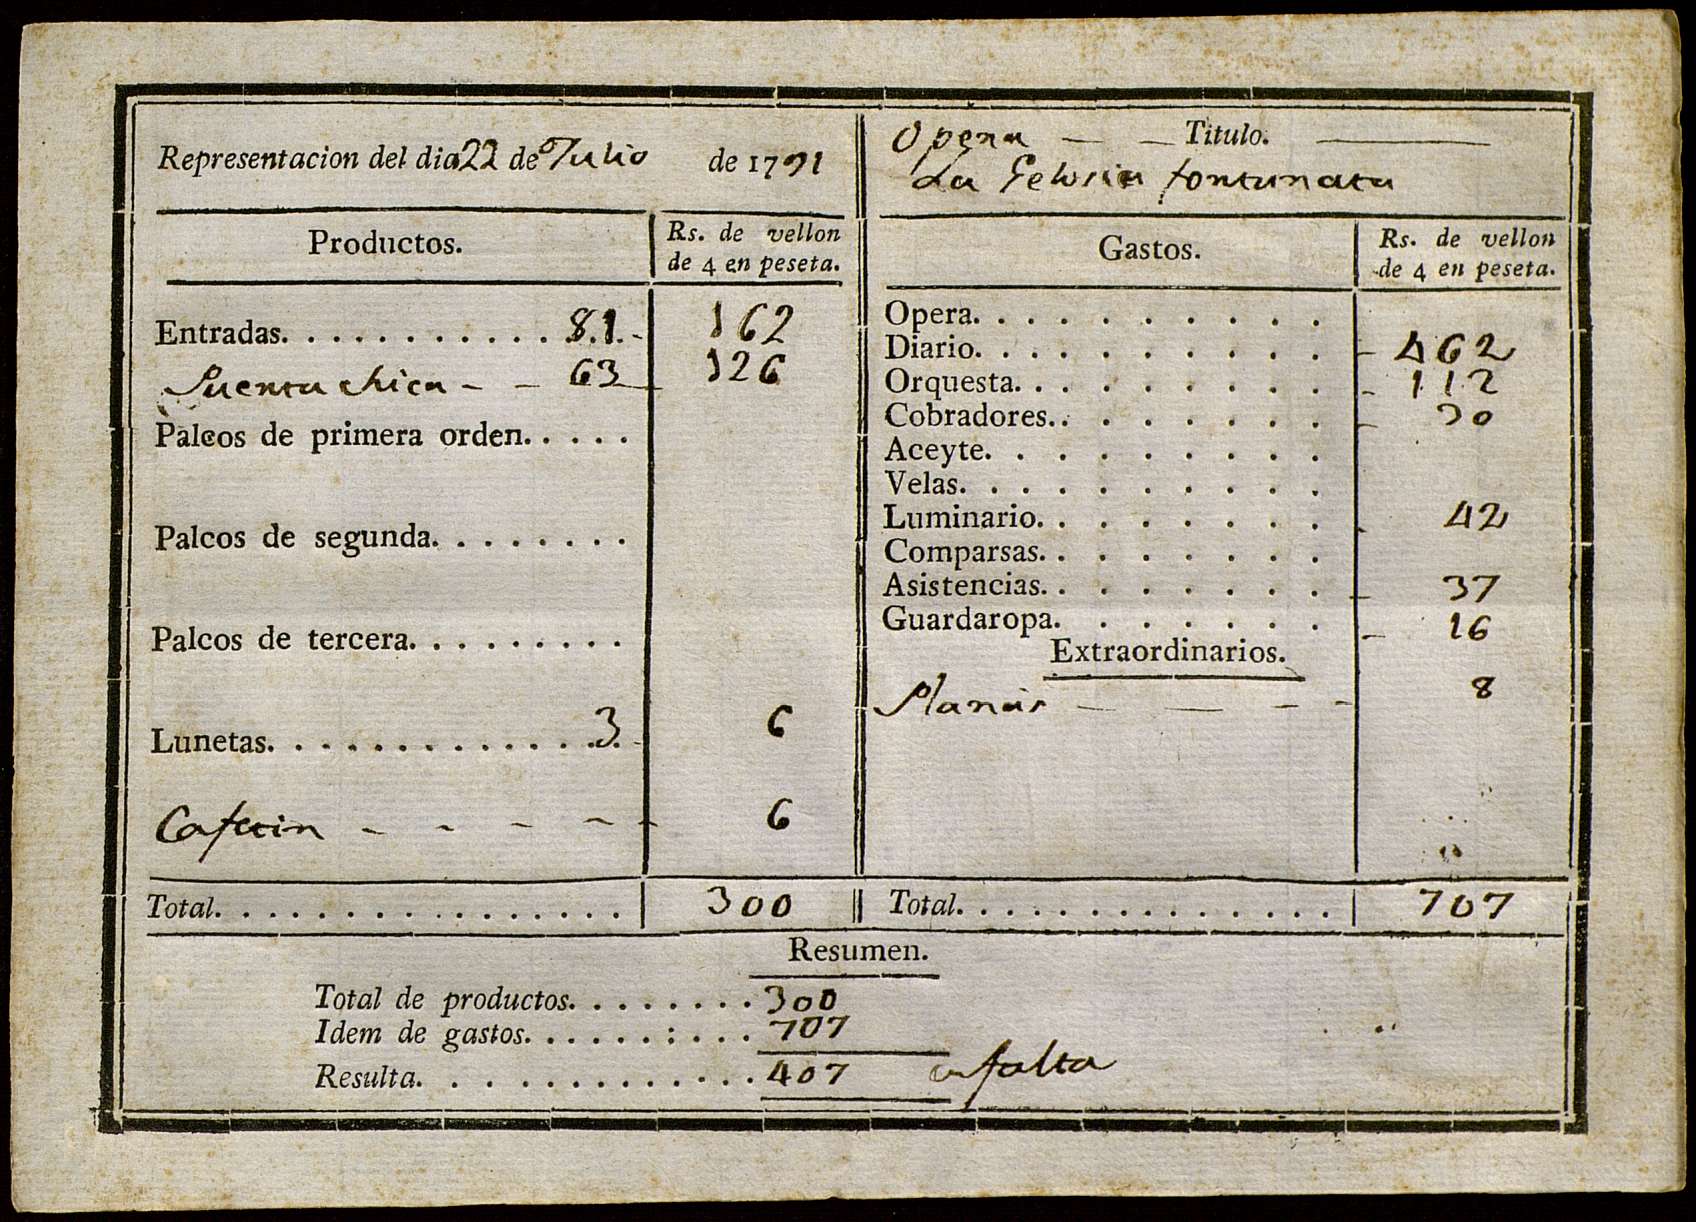 Representacion del dia 22 de Julio de 1791
Opera — — Titulo. ———
La Gelosia fortunata
Productos.
Rs. de vellon
de 4 en peseta.
Entradas. . . . . . . . . . . . 81. - 162
Puerta chica - - 63 126
Palcos de primera orden. . . . .
Palcos de segunda. . . . . . . .
Palcos de tercera. . . . . . . . .
Lunetas. . . . . . . . . . . . . 3. - 6
Cafetin - - - - - 6
Total. . . . . . . . . . . . . . . . 300
Gastos.
Rs. de vellon
de 4 en peseta.
Opera. . . . . . . . . .
Diario. . . . . . . . . . - 462
Orquesta. . . . . . . . . - 112
Cobradores. . . . . . . . - 30
Aceyte. . . . . . . . . .
Velas. . . . . . . . . . .
Luminario. . . . . . . . - 42
Comparsas. . . . . . . .
Asistencias. . . . . . . . - 37
Guardaropa. . . . . . . - 16
Extraordinarios.
Planas — — - - 8
Total. . . . . . . . . . . . . . . 707
Resumen.
Total de productos. . . . . . . . 300
Idem de gastos. . . . . . : . . . 707
Resulta. . . . . . . . . . . . . 407 en falta